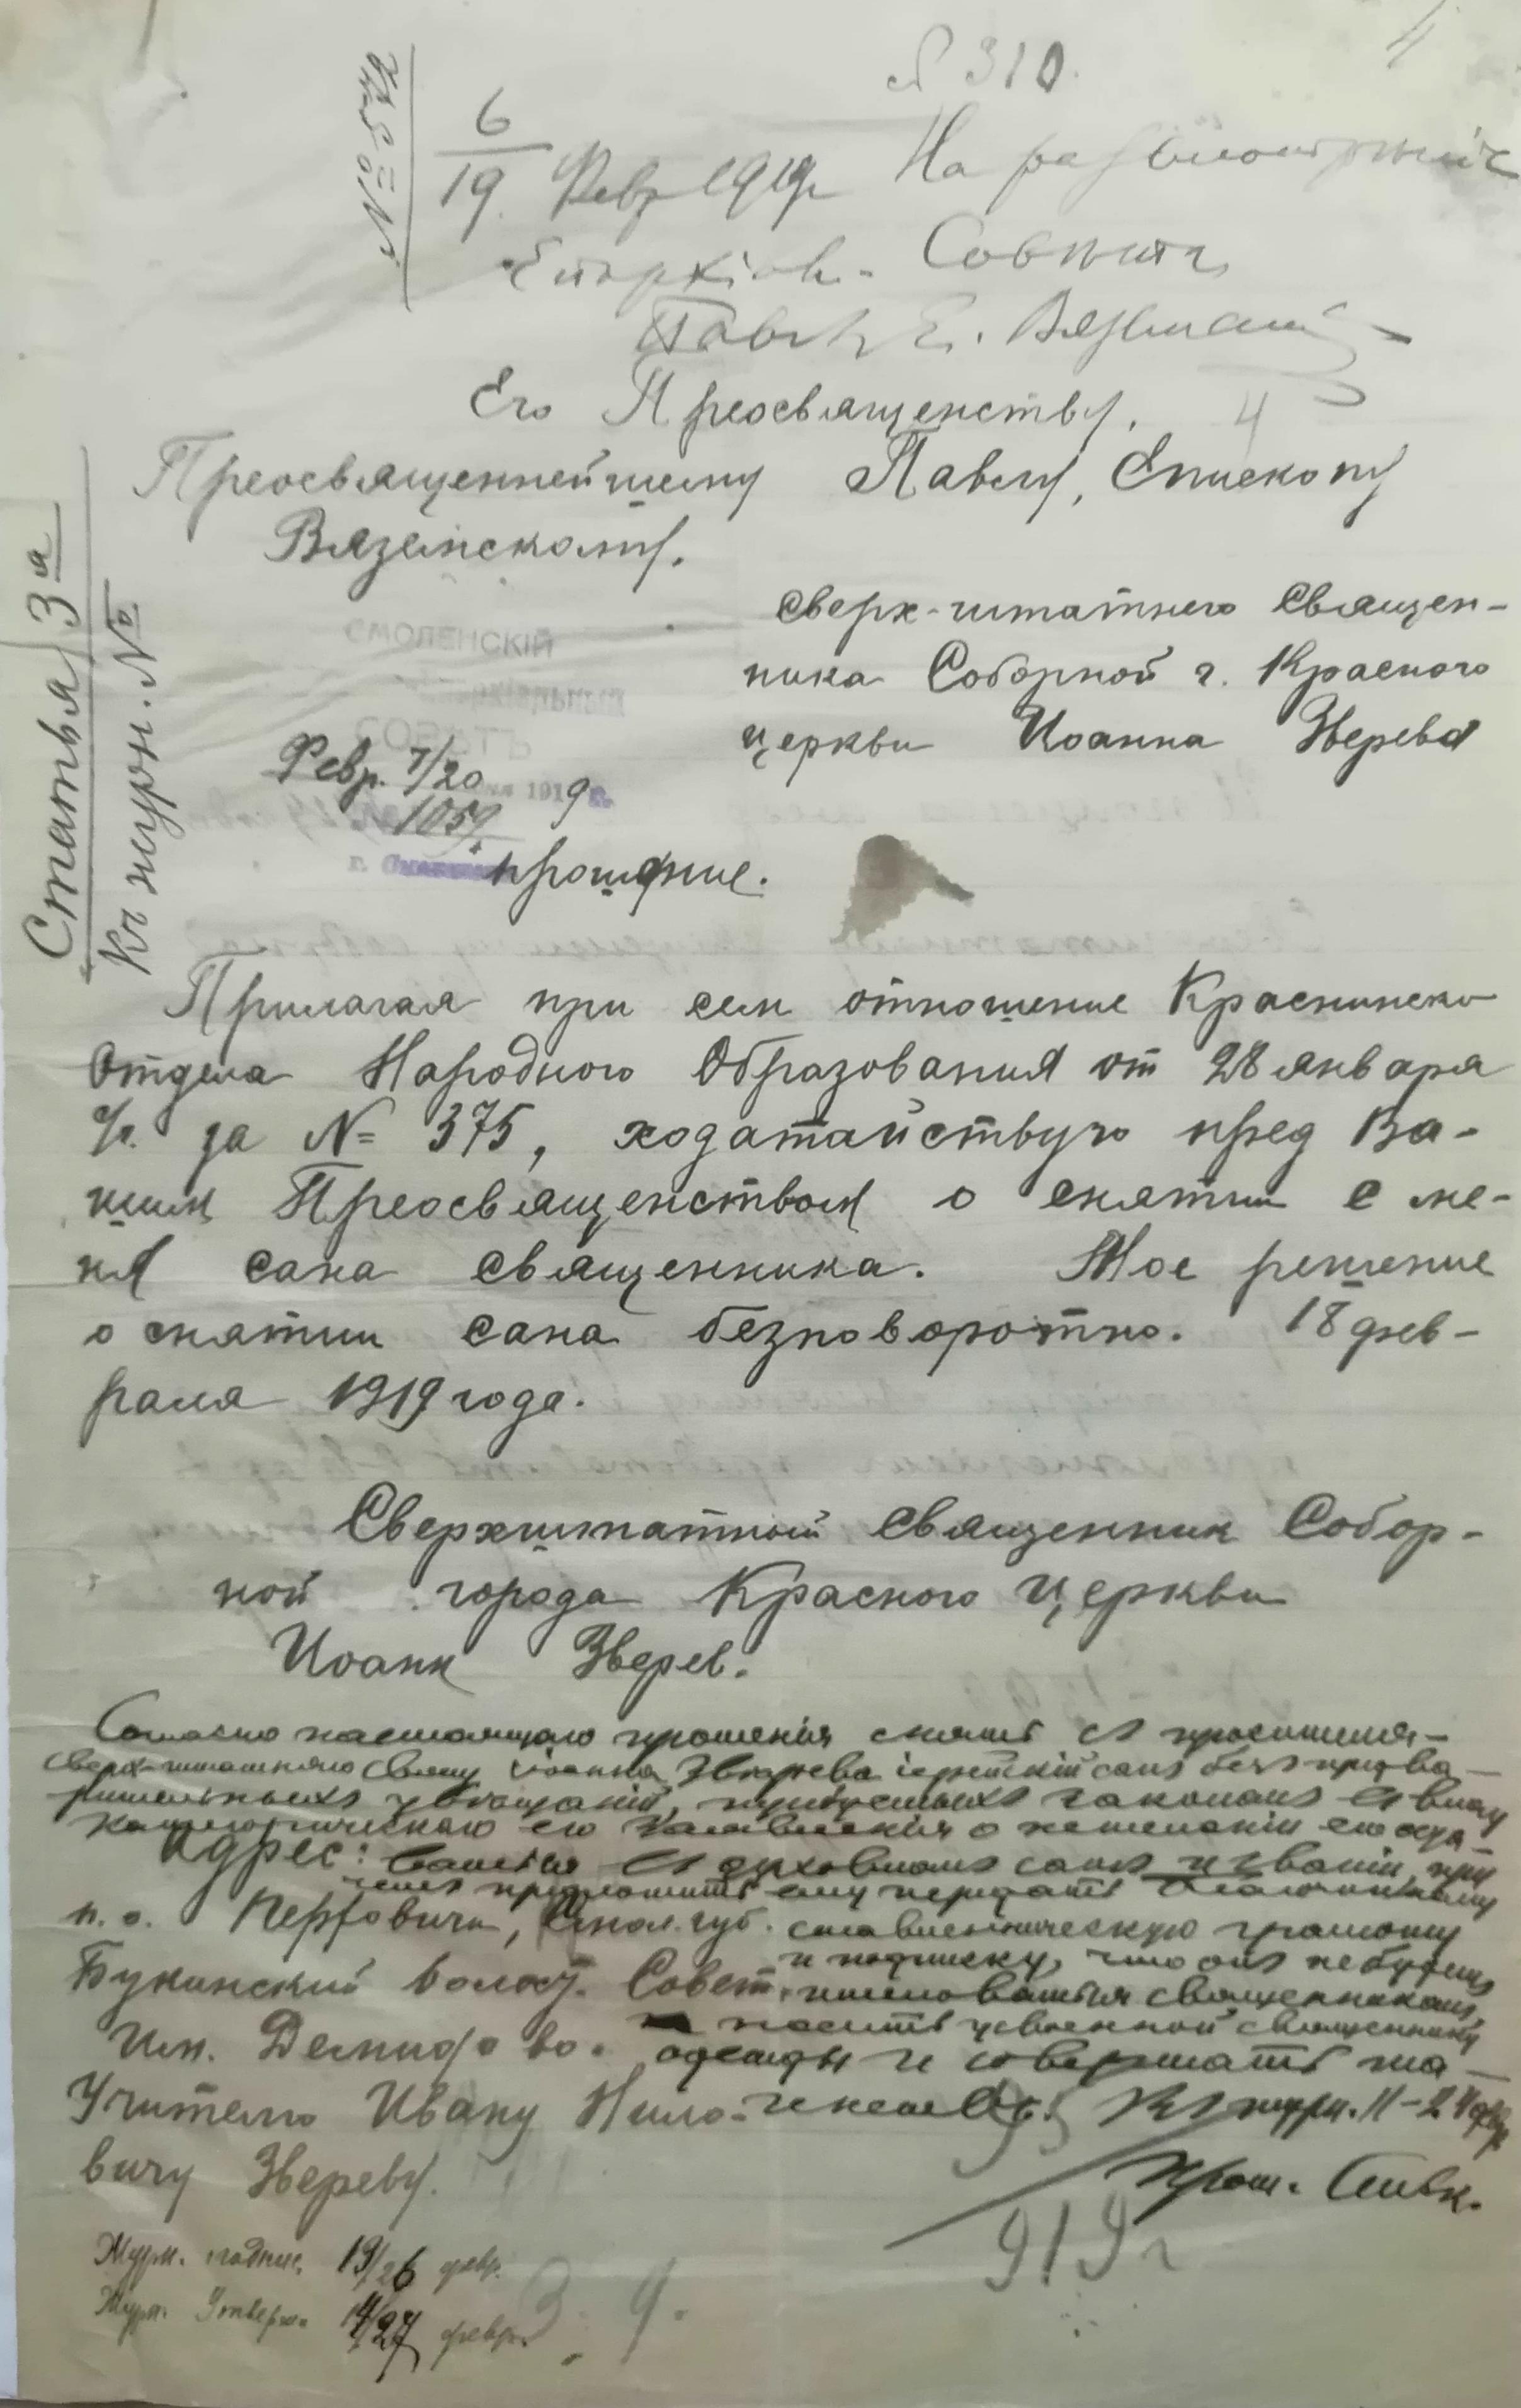 № 310.
4
6/19 Февр 1919 г На разсмотрѣніе
Епархіал. Совѣта
Павел Е. Вяземскій
4
Его Преосвященству,
Преосвященнейшему Павлу, Епископу
Вяземскому.
Статья 3я
Къ журн. №
Сверх-штатного Священ-
ника Соборной г. Красного
церкви Иоанна Зверева
СМОЛЕНСКІЙ
Епархіальный
СОВѢТЪ
Февр. 7/20 1919 г.
1059
прошение.
Прилагая при сем отношение Краснинского
Отдела Народного Образования от 28 января
с/г. за № 375, ходатайствую пред Ва-
шим Преосвященством о снятии с ме-
ня сана священника. Мое решение
о снятии сана безповоротно. 18 фев-
раля 1919 года.
Сверхштатный священник Собор-
ной города Красного церкви
Иоанн Зверев.
Согласно настоящаго прошенія снять съ просителя-
сверх-штатнаго Свящ Іоанна Зверева іерейскій санъ безъ предва-
рительныхъ увѣщаній, требуемыхъ закономъ въ виду
категорическаго его заявленія о нежеланіи его оста-
ваться въ духовномъ санѣ и званіи, при
чемъ предложить ему передать Благочинному
ставленническую грамоту
и подписку, что онъ не будетъ
именоваться священникомъ,
носить усвоенной священнику
одежды и совершать та-
Къ журн. 11-24 февр
919 г
Адрес:
п. о. Смол. губ.
Букинский волост. Совет.
им. Демидово.
Учителю Ивану Нило-
вичу Звереву.
Журн. подпис. 13/26 февр.
Журн. Утвержд. 14/27 февр.